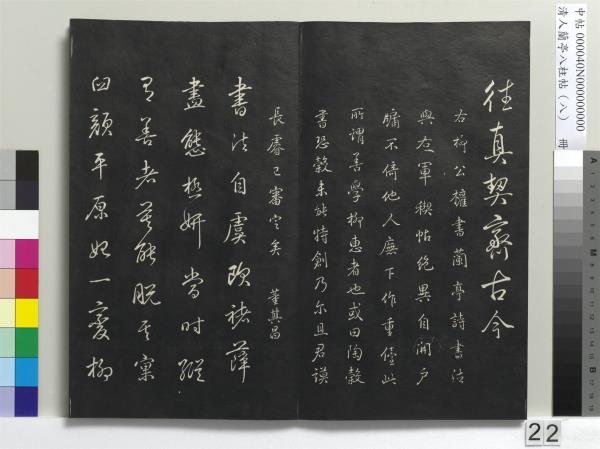 中帖 000040N000000000
清人蘭亭八柱帖（八） 冊
往真契齊古今
右柳公權書蘭亭詩書法
與右軍禊帖絶異自開戶
牖不倚他人廡下作重儓此
所謂善學柳惠者也或曰陶穀
書恐穀未能特創乃尔且君謨
長睿已審定矣 董其昌
書法自虞歐褚薛
盡態極妍當時縱
有善者莫能脫其窠
臼顏平原始一變柳
22